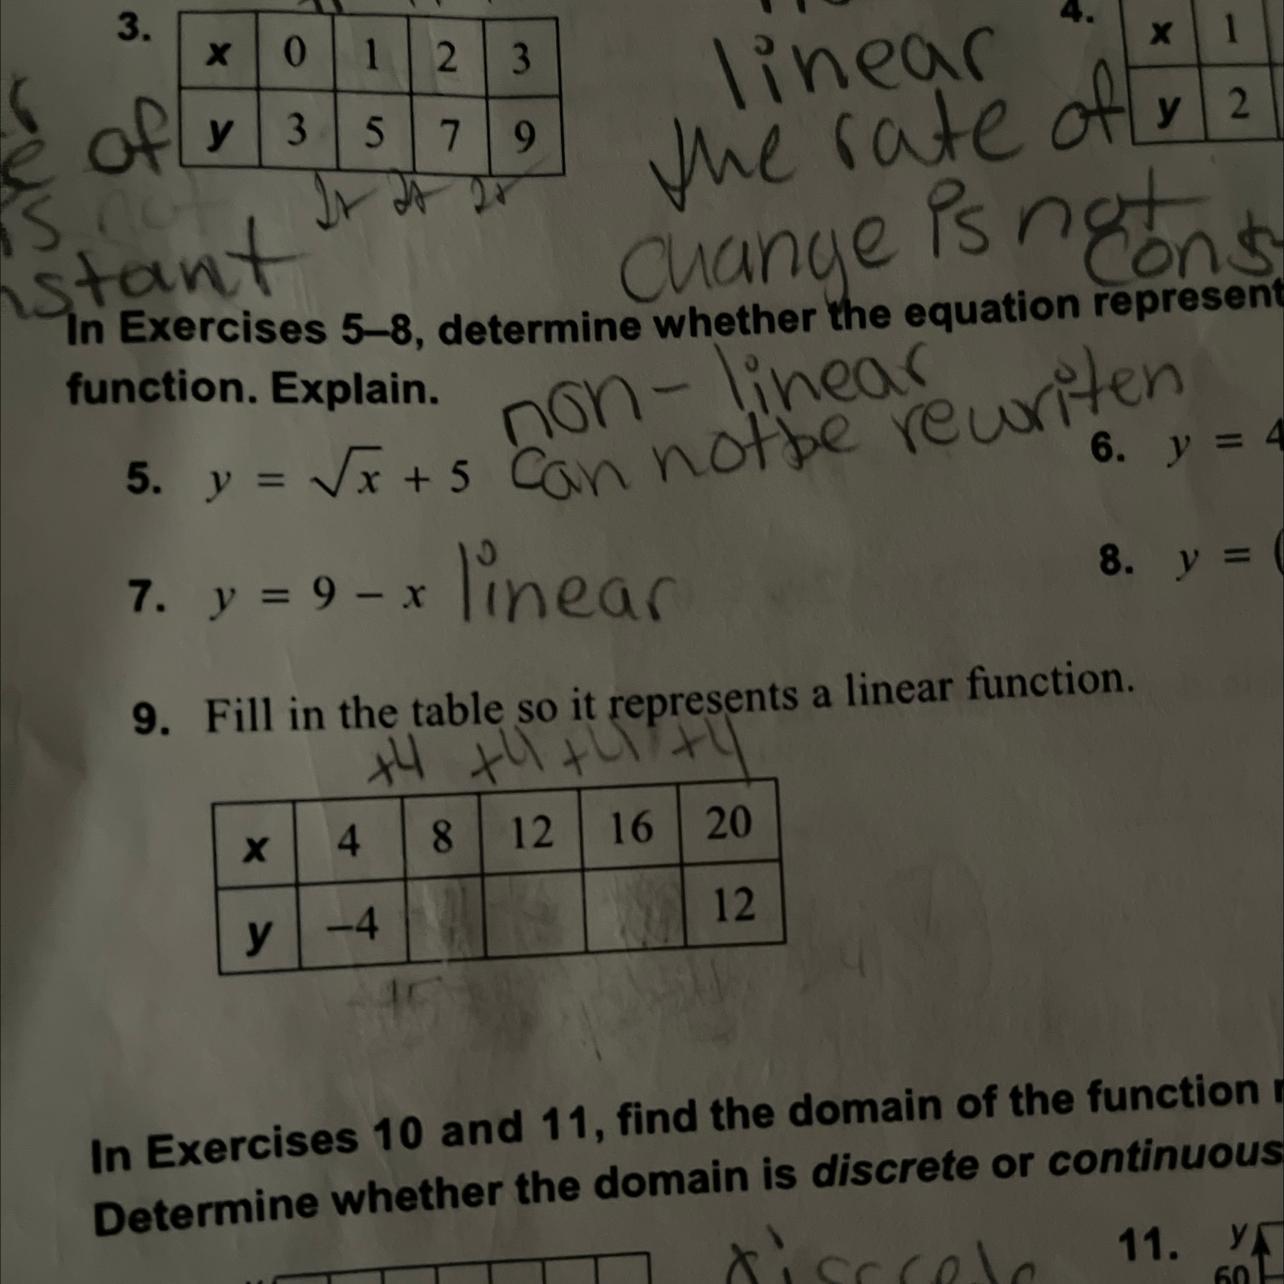 3.
x 0 1 2 3
y 3 5 7 9
of
stant
linear
the rate of
change is not
const
4.
x 1
y 2
In Exercises 5–8, determine whether the equation represent
function. Explain.
non-linear
can not be rewriten
5. y = √x + 5
6. y = 4
7. y = 9 − x linear
8. y = (
9. Fill in the table so it represents a linear function.
+4 +4 +4 +4
x 4 8 12 16 20
y −4 12
In Exercises 10 and 11, find the domain of the function
Determine whether the domain is discrete or continuous
11. y
60